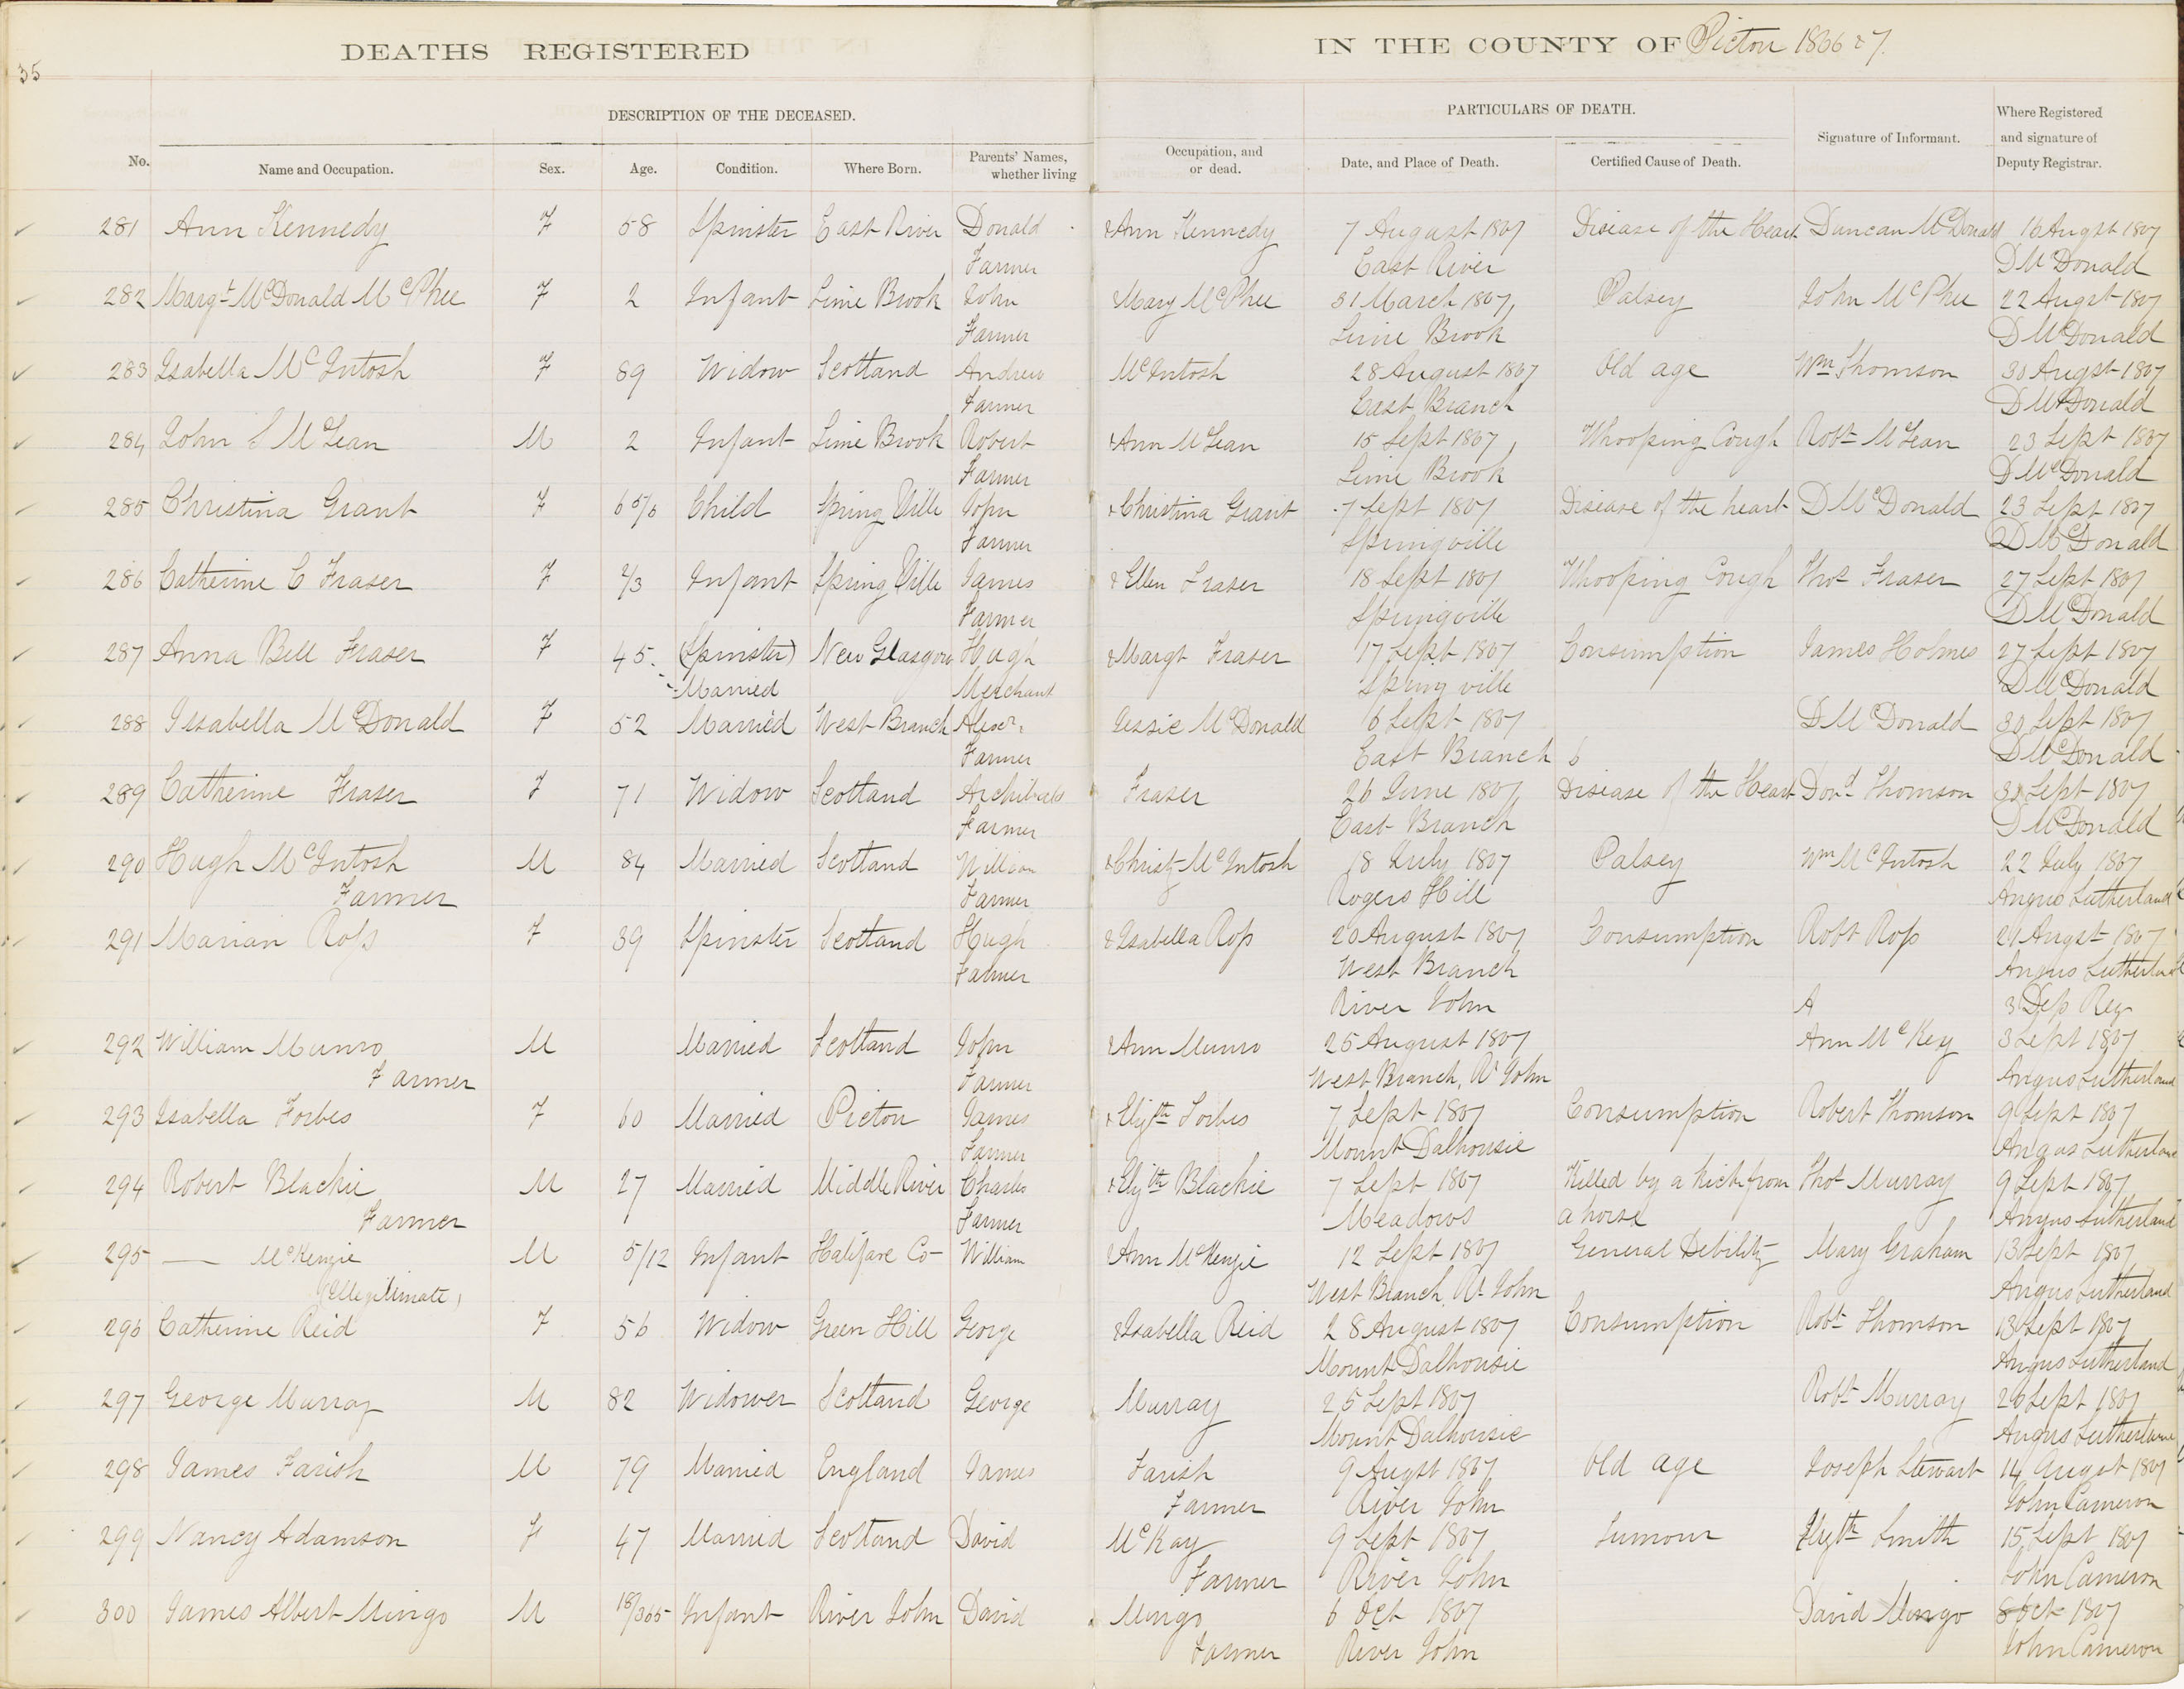 DEATHS REGISTERED IN THE COUNTY OF Picton 1866 & 7.
35
DESCRIPTION OF THE DECEASED. PARTICULARS OF DEATH.
No. Name and Occupation. Sex. Age. Condition. Where Born. Parents' Names, whether living Occupation, and or dead. Date, and Place of Death. Certified Cause of Death. Signature of Informant. Where Registered and signature of Deputy Registrar.
281 Ann Kennedy F 58 Spinster East River Donald & Ann Kennedy 7 August 1867 Disease of the Heart Duncan McDonald 16 Augst 1867
Farmer East River D McDonald
282 Margt McDonald McPhee F 2 Infant Lime Brook John & Mary McPhee 31 March 1867 Palsey John McPhee 22 Augst 1867
Farmer Lime Brook D McDonald
283 Isabella McIntosh F 89 Widow Scotland Andrew McIntosh 28 August 1867 Old age Wm Thomson 30 Augst 1867
Farmer East Branch D McDonald
284 John S McLean M 2 Infant Lime Brook Robert & Ann McLean 15 Sept 1867 Whooping Cough Robt McLean 23 Sept 1867
Farmer Lime Brook D McDonald
285 Christina Grant F 6 5/6 Child Spring Ville John & Christina Grant 7 Sept 1867 Disease of the heart D McDonald 23 Sept 1867
Farmer Springville D McDonald
286 Catherine C Fraser F 2/3 Infant Spring Ville James & Ellen Fraser 18 Sept 1867 Whooping Cough Thos Fraser 27 Sept 1867
Farmer Springville D McDonald
287 Anna Bell Fraser F 45 (Spinster) New Glasgow Hugh & Margt Fraser 17 Sept 1867 Consumption James Holmes 27 Sept 1867
Married Merchant Spring ville D McDonald
288 Issabella McDonald F 52 Married West Branch Alexr Jessie McDonald 6 Sept 1867 D McDonald 30 Sept 1867
Farmer East Branch 6 D McDonald
289 Catherine Fraser F 71 Widow Scotland Archibald Fraser 26 June 1867 Disease of the Heart Dond Thomson 30 Sept 1867
Farmer East Branch D McDonald
290 Hugh McIntosh M 84 Married Scotland William & Christy McIntosh 18 July 1867 Palsey Wm McIntosh 22 July 1867
Farmer Farmer Rogers Hill Angus Sutherland
291 Marian Ross F 39 Spinster Scotland Hugh & Isabella Ross 20 August 1867 Consumption Robt Ross 21 Augst 1867
Farmer West Branch Angus Sutherland
River John A 3 Dep Reg
292 William Munro M Married Scotland John & Ann Munro 25 August 1867 Ann McKey 3 Sept 1867
Farmer Farmer West Branch, R. John Angus Sutherland
293 Isabella Forbes F 60 Married Picton James & Elizth Forbes 7 Sept 1867 Consumption Robert Thomson 9 Sept 1867
Farmer Mount Dalhousie Angus Sutherland
294 Robert Blackie M 27 Married Middle River Charles & Elizth Blackie 7 Sept 1867 Killed by a kick from Thos Murray 9 Sept 1867
Farmer Farmer Meadows a horse Angus Sutherland
295 — McKenzie M 5/12 Infant Halifax Co William & Ann McKenzie 12 Sept 1867 General Debility Mary Graham 13 Sept 1867
(Illegitimate) West Branch R. John Angus Sutherland
296 Catherine Reid F 56 Widow Green Hill George & Isabella Reid 28 August 1867 Consumption Robt Thomson 13 Sept 1867
Mount Dalhousie Angus Sutherland
297 George Murray M 82 Widower Scotland George Murray 25 Sept 1867 Robt Murray 26 Sept 1867
Mount Dalhousie Angus Sutherland
298 James Farish M 79 Married England James Farish 9 Augst 1867 Old age Joseph Stewart 14 August 1867
Farmer River John John Cameron
299 Nancy Adamson F 47 Married Scotland David McKay 9 Sept 1867 Tumour Elizth Smith 15 Sept 1867
Farmer River John John Cameron
300 James Albert Mingo M 18/365 Infant River John David Mingo 6 Oct 1867 David Mingo 8 Oct 1867
Farmer River John John Cameron